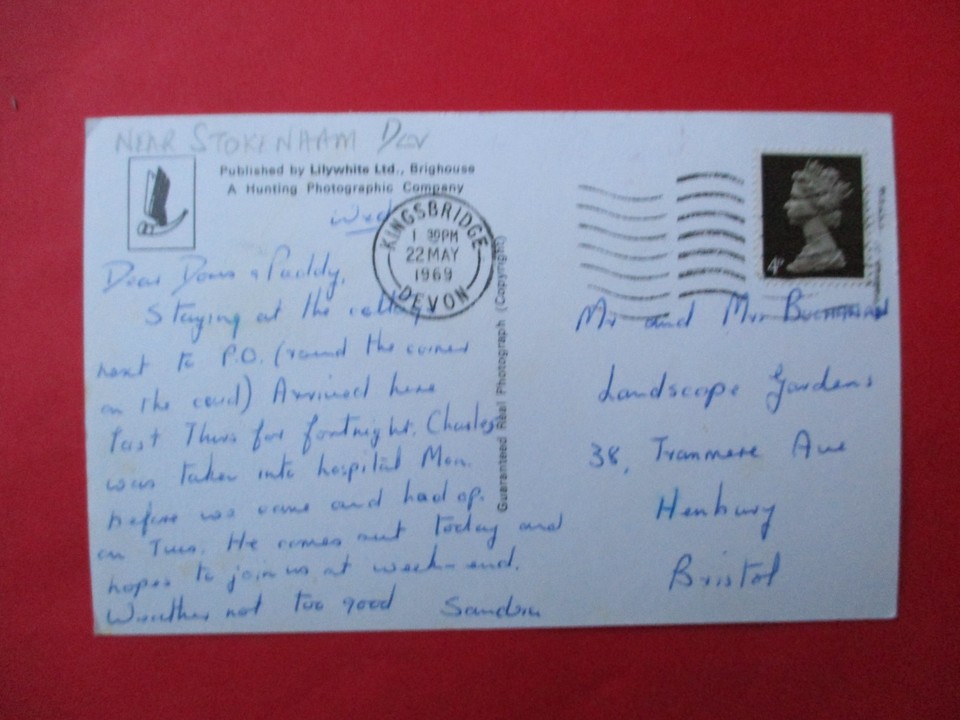 NEAR STOKENAAM Dev
Published by Lilywhite Ltd., Brighouse
A Hunting Photographic Company
Wed
KINGSBRIDGE
1 30PM
22 MAY
1969
DEVON
4P
Guaranteed Real Photograph (Copyright)
Dear & Paddy,
Staying at the cottage
next to P.O. (round the corner
on the card) Arrived here
last Thurs for fortnight. Charles
was taken into hospital Mon.
before we came and had op.
on Tues. He comes out today and
hopes to join us at week-end.
Weather not too good Sandra
Mr and Mrs BUCHANAN
Landscape Gardens
38, Tranmere Ave
Henbury
Bristol